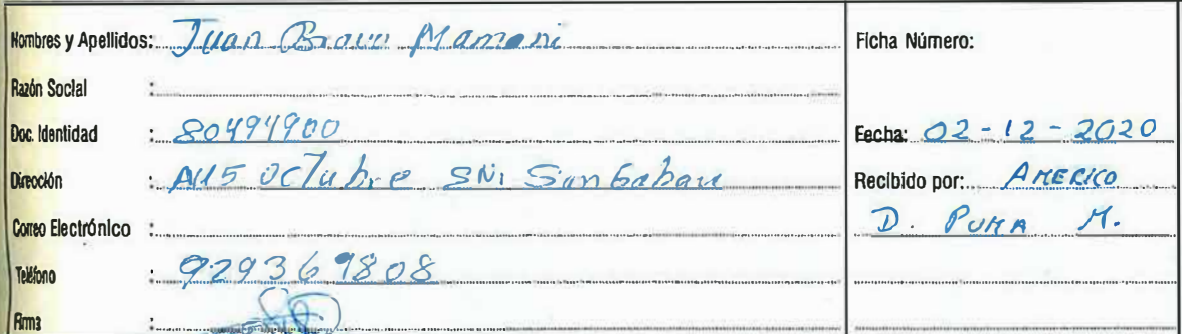 Nombres y Apellidos: Juan Bravo Mamani
Razón Social :
Doc. Identidad : 80494900
Dirección : Octubre S/N; San Gaban
Correo Electrónico :
Teléfono : 929369808
Firma :
Ficha Número:
Fecha: 02-12-2020
Recibido por: AMERICO
D. PUMA M.